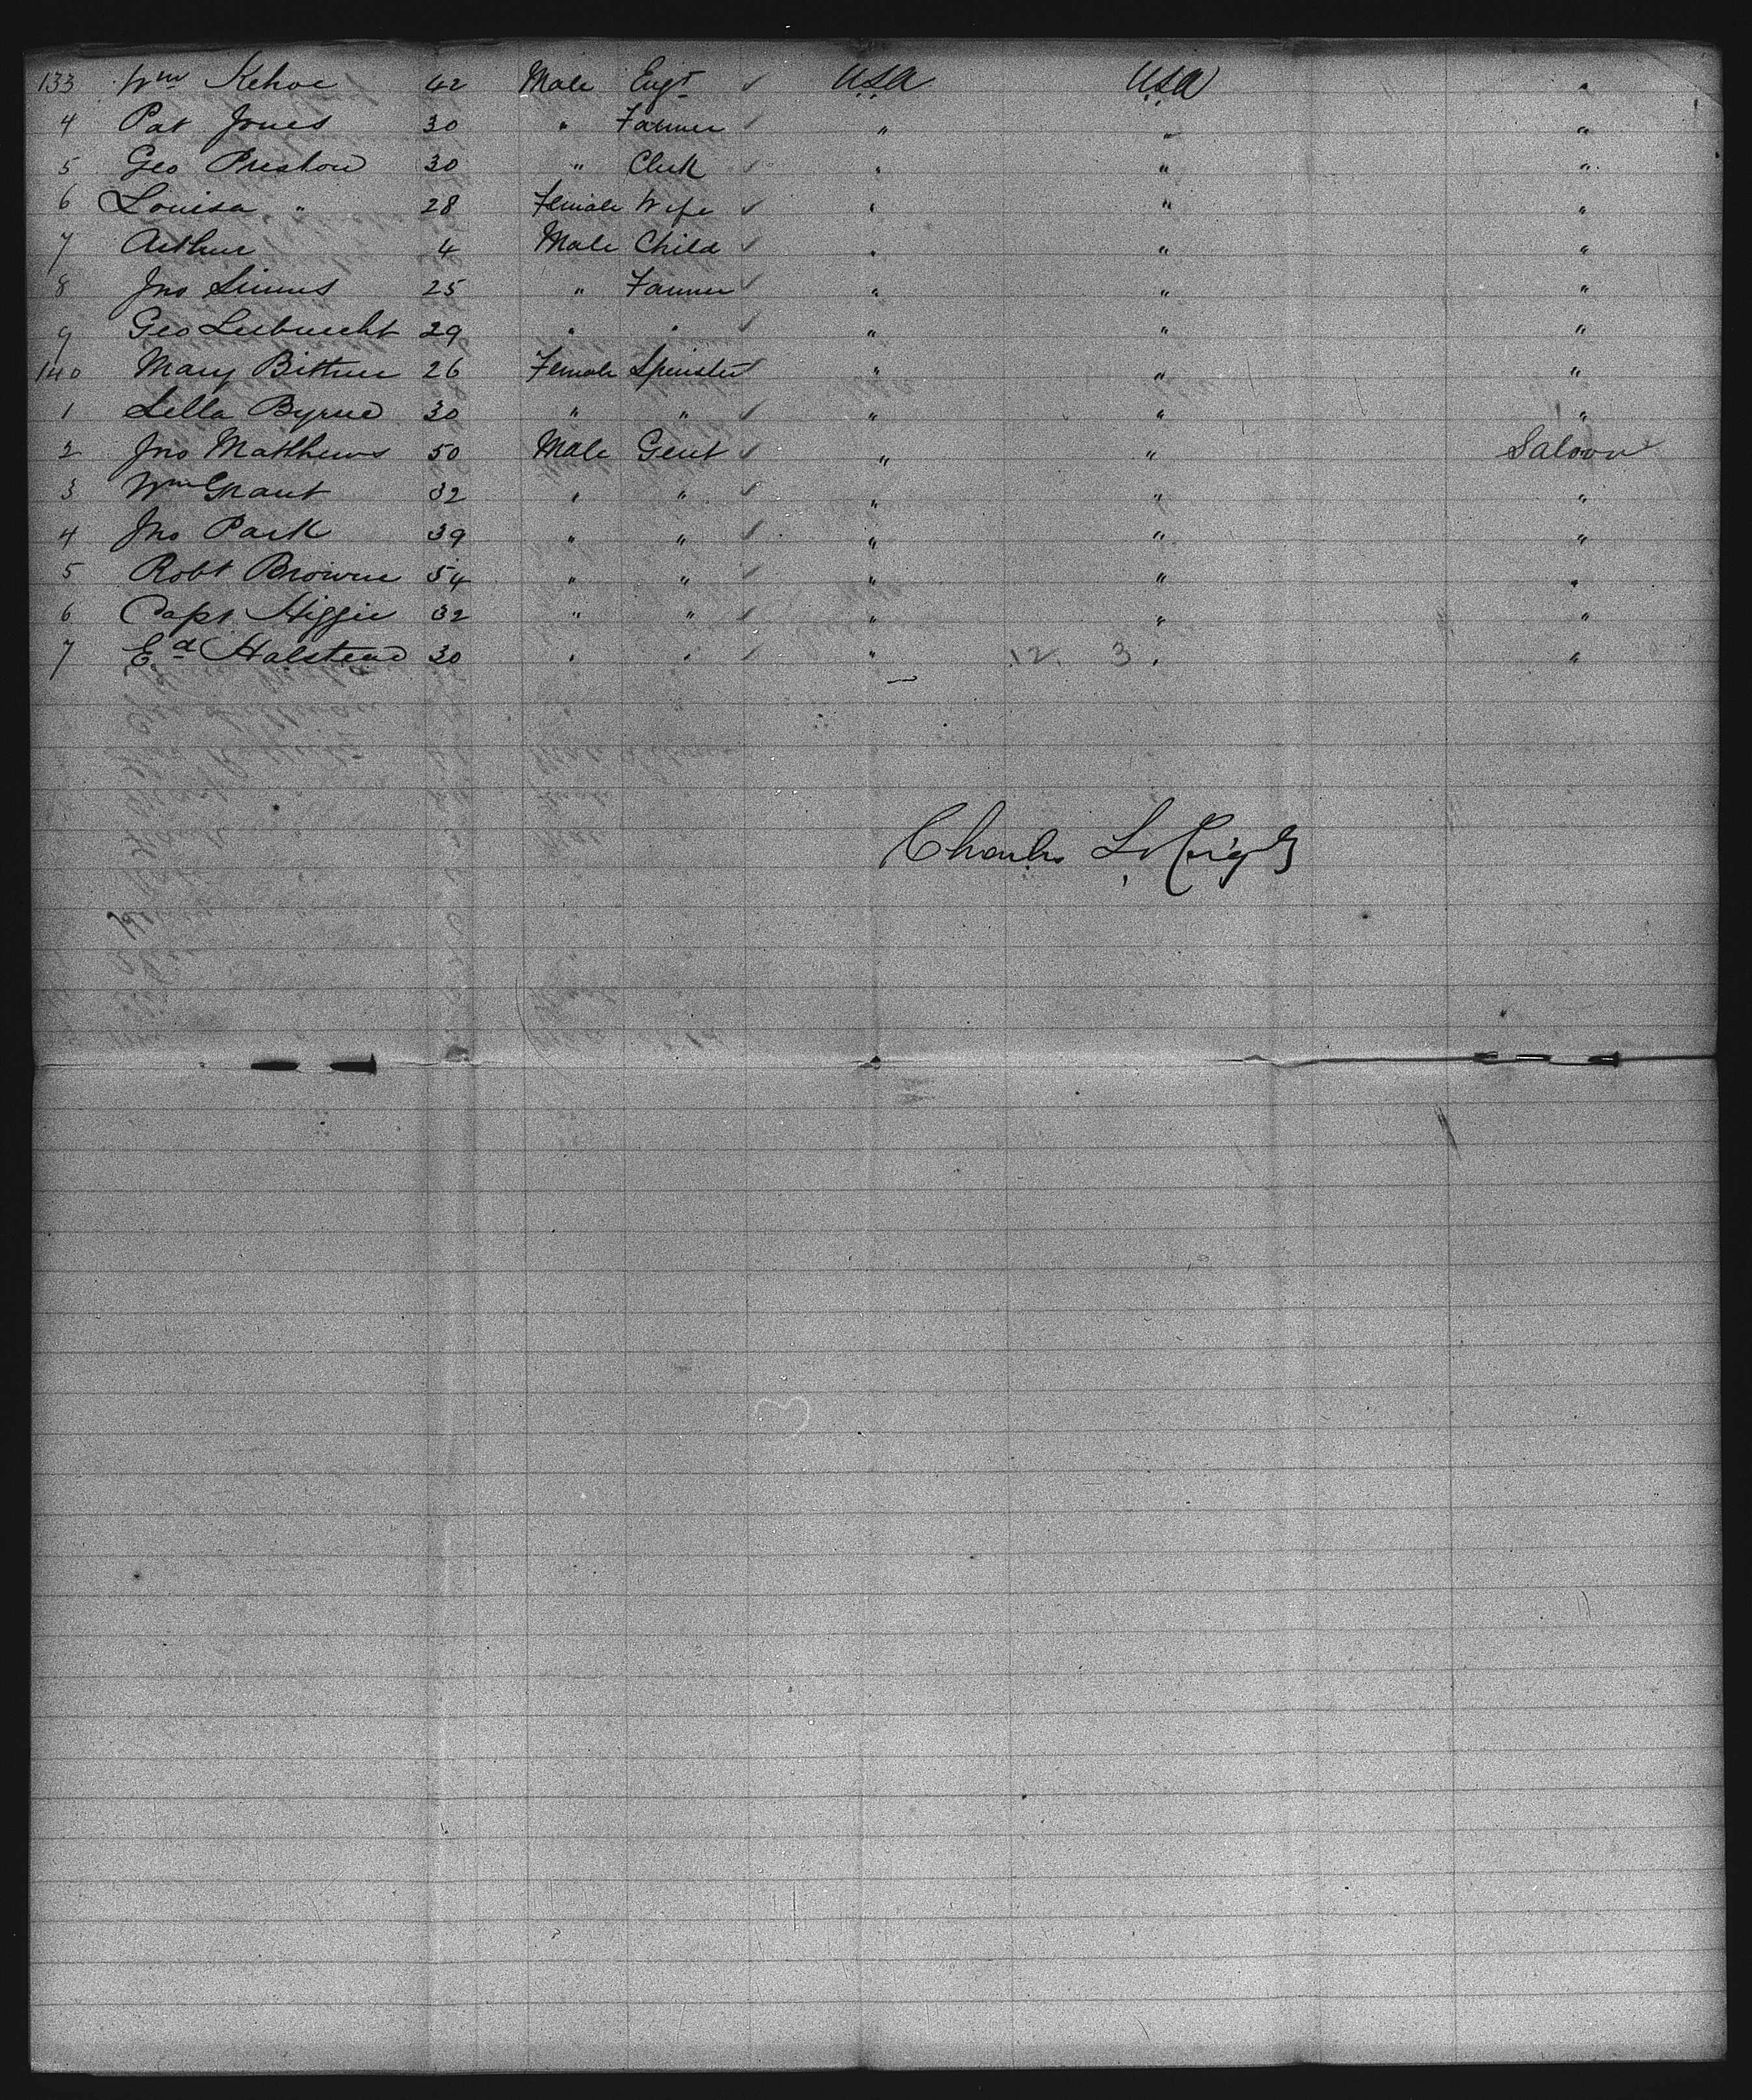 133 Wm Kehoe 42 Male Engr ✓ U.S.A U.S.A "
4 Pat Jones 30 " Farmer ✓ " " "
5 Geo Preston 30 " Clerk ✓ " " "
6 Louisa " 28 Female Wife ✓ " " "
7 Arthur 4 Male Child ✓ " " "
8 Jno Simms 25 " Farmer ✓ " " "
9 Geo 29 " " ✓ " " "
140 Mary Bittner 26 Female Spinster ✓ " " "
1 Lella Byrne 30 " " ✓ " " "
2 Jno Matthews 50 Male Gent ✓ " " Saloon
3 Wm Grant 32 " " ✓ " " "
4 Jno Park 39 " " ✓ " " "
5 Robt Browne 54 " " ✓ " " "
6 Capt Higgie 32 " " ✓ " " "
7 Ed Halstead 30 " " ✓ " 12. 3 " "
Charles